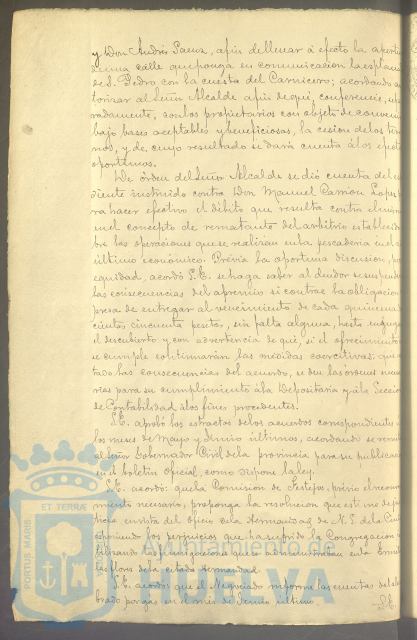 y Don Andrés Saenz, afin de llevar á efecto la apert
de una calle que ponga en comunicación la esplana
de S. Pedro con la cuesta del Carnicero; acordando au
torizar al Señor Alcalde afin de que, conferencie,
radamente, con los propietarios con objeto de convenir
bajo bases aceptables y beneficiosas, la cesion de los ter
nos, y de cuyo resultado se dará cuenta á los efect
oportunos.
De órden del Señor Alcalde se dió cuenta del es
diente instruido contra Don Manuel Carrion Lopez
ra hacer efectivo el débito que resulta contra el mismo
en el concepto de rematante del arbitrio establecido
bre las operaciones que se realizan en la pescaderia en el
último económico. Prévia la oportuna discusion, por
equidad, acordó S.E. se haga saber al deudor se suspende
las consecuencias del apremio si contrae la obligacion
presa de entregar al vencimiento de cada quincena
cientas cincuenta pesetas, sin falta alguna, hasta enjugar
el descubierto y con advertencia de que, si el ofrecimiento
se cumple continuarán las medidas coercitivas; que
tado las consecuencias del acuerdo, se den las órdenes nece
rias para su cumplimiento á la Depositaria y á la Seccion
de Contabilidad á los fines procedentes.
S.E. aprobó los estractos de los acuerdos correspondientes
los meses de Mayo y Junio últimos, acordando se remi
al Señor Gobernador Civil de la provincia para su publicacion
en el boletin Oficial, como dispone la ley.
S.E. acordó: que la Comision de Festejos, prévio el recono
miento necesario, proponga la resolucion que estime de jus
ticia en vista del oficio de la Hermandad de N. S. de la Cinta
esponiendo los perjuicios que ha sufrido la Congregacion
las flores de la citada Hermandad.
S.E. acordó que el Negociado informe las cuentas del al
brado por gas en el mes de Junio último.
S.E.
PORTUS MARIS ET TERRÆ
Ayuntamiento de
HUELVA